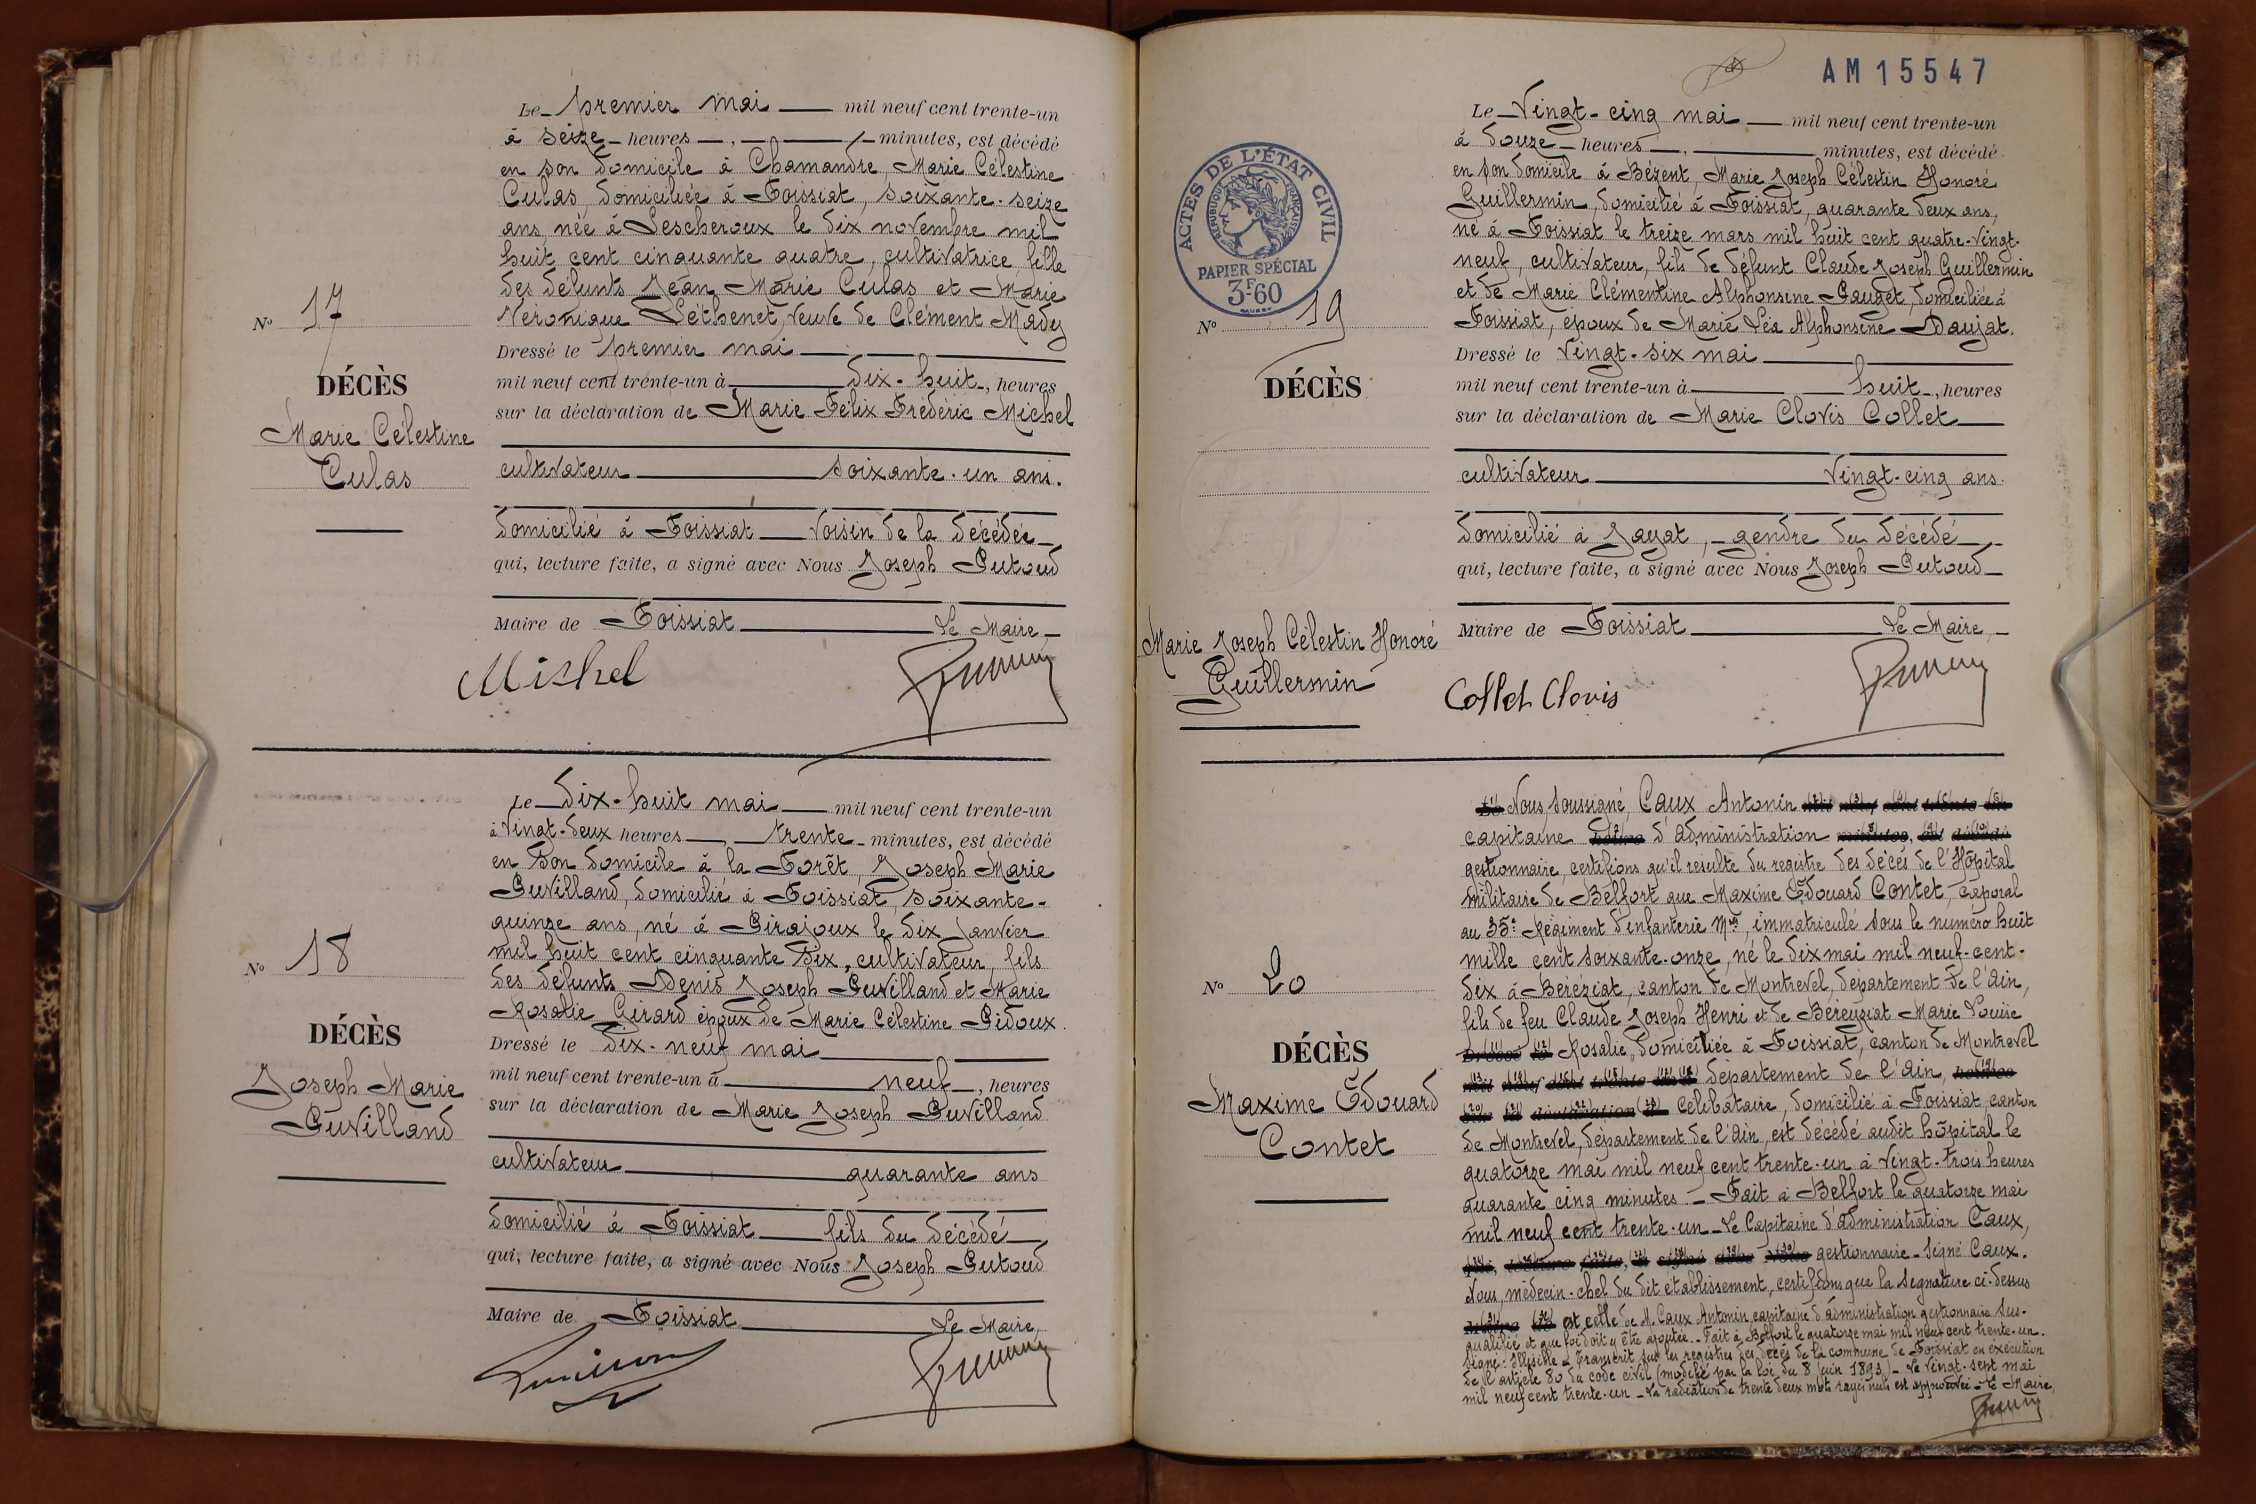 Le premier mai mil neuf cent trente-un
à seize heures , minutes, est décédé
en son domicile à Chamandre, Marie Célestine
Culas, domiciliée à Foissiat, soixante-seize
ans, née à Lescheroux le dix novembre mil
huit cent cinquante quatre, cultivatrice, fille
des défunts Jean Marie Culas et Marie
Véronique Léthenet, veuve de Clément Mady
Dressé le premier mai
mil neuf cent trente-un à dix-huit, heures
sur la déclaration de Marie Félix Frédéric Michel
cultivateur soixante-un ans.
domicilié à Foissiat voisin de la décédée
qui, lecture faite, a signé avec Nous Joseph Putoud
Maire de Foissiat Le Maire
Michel
No 17
DÉCÈS
Marie Célestine
Culas
Le dix-huit mai mil neuf cent trente-un
à vingt-deux heures , trente minutes, est décédé
en son domicile à la Forêt, Joseph Marie
Puvilland, domicilié à Foissiat, soixante-
quinze ans, né à Pirajoux le dix janvier
mil huit cent cinquante six, cultivateur, fils
des défunts Denis Joseph Puvilland et Marie
Rosalie Girard époux de Marie Célestine Pidoux.
Dressé le dix-neuf mai
mil neuf cent trente-un à neuf, heures
sur la déclaration de Marie Joseph Puvilland
cultivateur quarante ans
domicilié à Foissiat fils du décédé
qui, lecture faite, a signé avec Nous Joseph Putoud
Maire de Foissiat Le Maire,
No 18
DÉCÈS
Joseph Marie
Puvilland
AM15547
ACTES DE L'ÉTAT CIVIL
RÉPUBLIQUE FRANÇAISE
PAPIER SPÉCIAL
3F60
Le vingt-cinq mai mil neuf cent trente-un
à douze heures , minutes, est décédé
en son domicile à Bézent, Marie Joseph Célestin Honoré
Guillermin, domicilié à Foissiat, quarante deux ans,
né à Foissiat le treize mars mil huit cent quatre-vingt-
neuf, cultivateur, fils de défunt Claude Joseph Guillermin
et de Marie Clémentine Alphonsine Pauget, domiciliée à
Foissiat, époux de Marie Léa Alphonsine Daujat.
Dressé le vingt-six mai
mil neuf cent trente-un à huit, heures
sur la déclaration de Marie Clovis Collet
cultivateur vingt-cinq ans.
domicilié à Jayat, gendre du décédé
qui, lecture faite, a signé avec Nous Joseph Putoud
Maire de Foissiat Le Maire,
Collet Clovis
No 19
DÉCÈS
Marie Joseph Célestin Honoré
Guillermin
Nous, soussigné, Caux Antonin
capitaine d'administration
gestionnaire, certifions qu'il résulte du registre des décès de l'Hôpital
militaire de Belfort que Maxime Edouard Contet, caporal
au 35e Régiment d'infanterie, immatriculé sous le numéro huit
mille cent soixante-onze, né le dix mai mil neuf-cent-
dix à Béréziat, canton de Montrevel, département de l'Ain,
fils de feu Claude Joseph Henri et de Béreyziat Marie Louise
Rosalie, domiciliée à Foissiat, canton de Montrevel
département de l'Ain,
célibataire, domicilié à Foissiat, canton
de Montrevel, département de l'Ain, est décédé audit hôpital le
quatorze mai mil neuf cent trente-un à vingt-trois heures
quarante cinq minutes. - Fait à Belfort le quatorze mai
mil neuf cent trente-un - Le Capitaine d'administration Caux,
gestionnaire - Signé Caux.
Nous, médecin-chef du dit établissement, certifions que la signature ci-dessus
est celle de M. Caux Antonin capitaine d'administration gestionnaire sus-
qualifié et que foi doit y être ajoutée. - Fait à Belfort le quatorze mai mil neuf cent trente-un.
Signé : Illisible - Transcrit sur les registres des décès de la commune de Foissiat en exécution
de l'article 80 du code civil (modifié par la loi du 8 juin 1893) - Le vingt-sept mai
mil neuf cent trente-un - La radiation de trente deux mots rayés nuls est approuvée - Le Maire,
No 20
DÉCÈS
Maxime Edouard
Contet